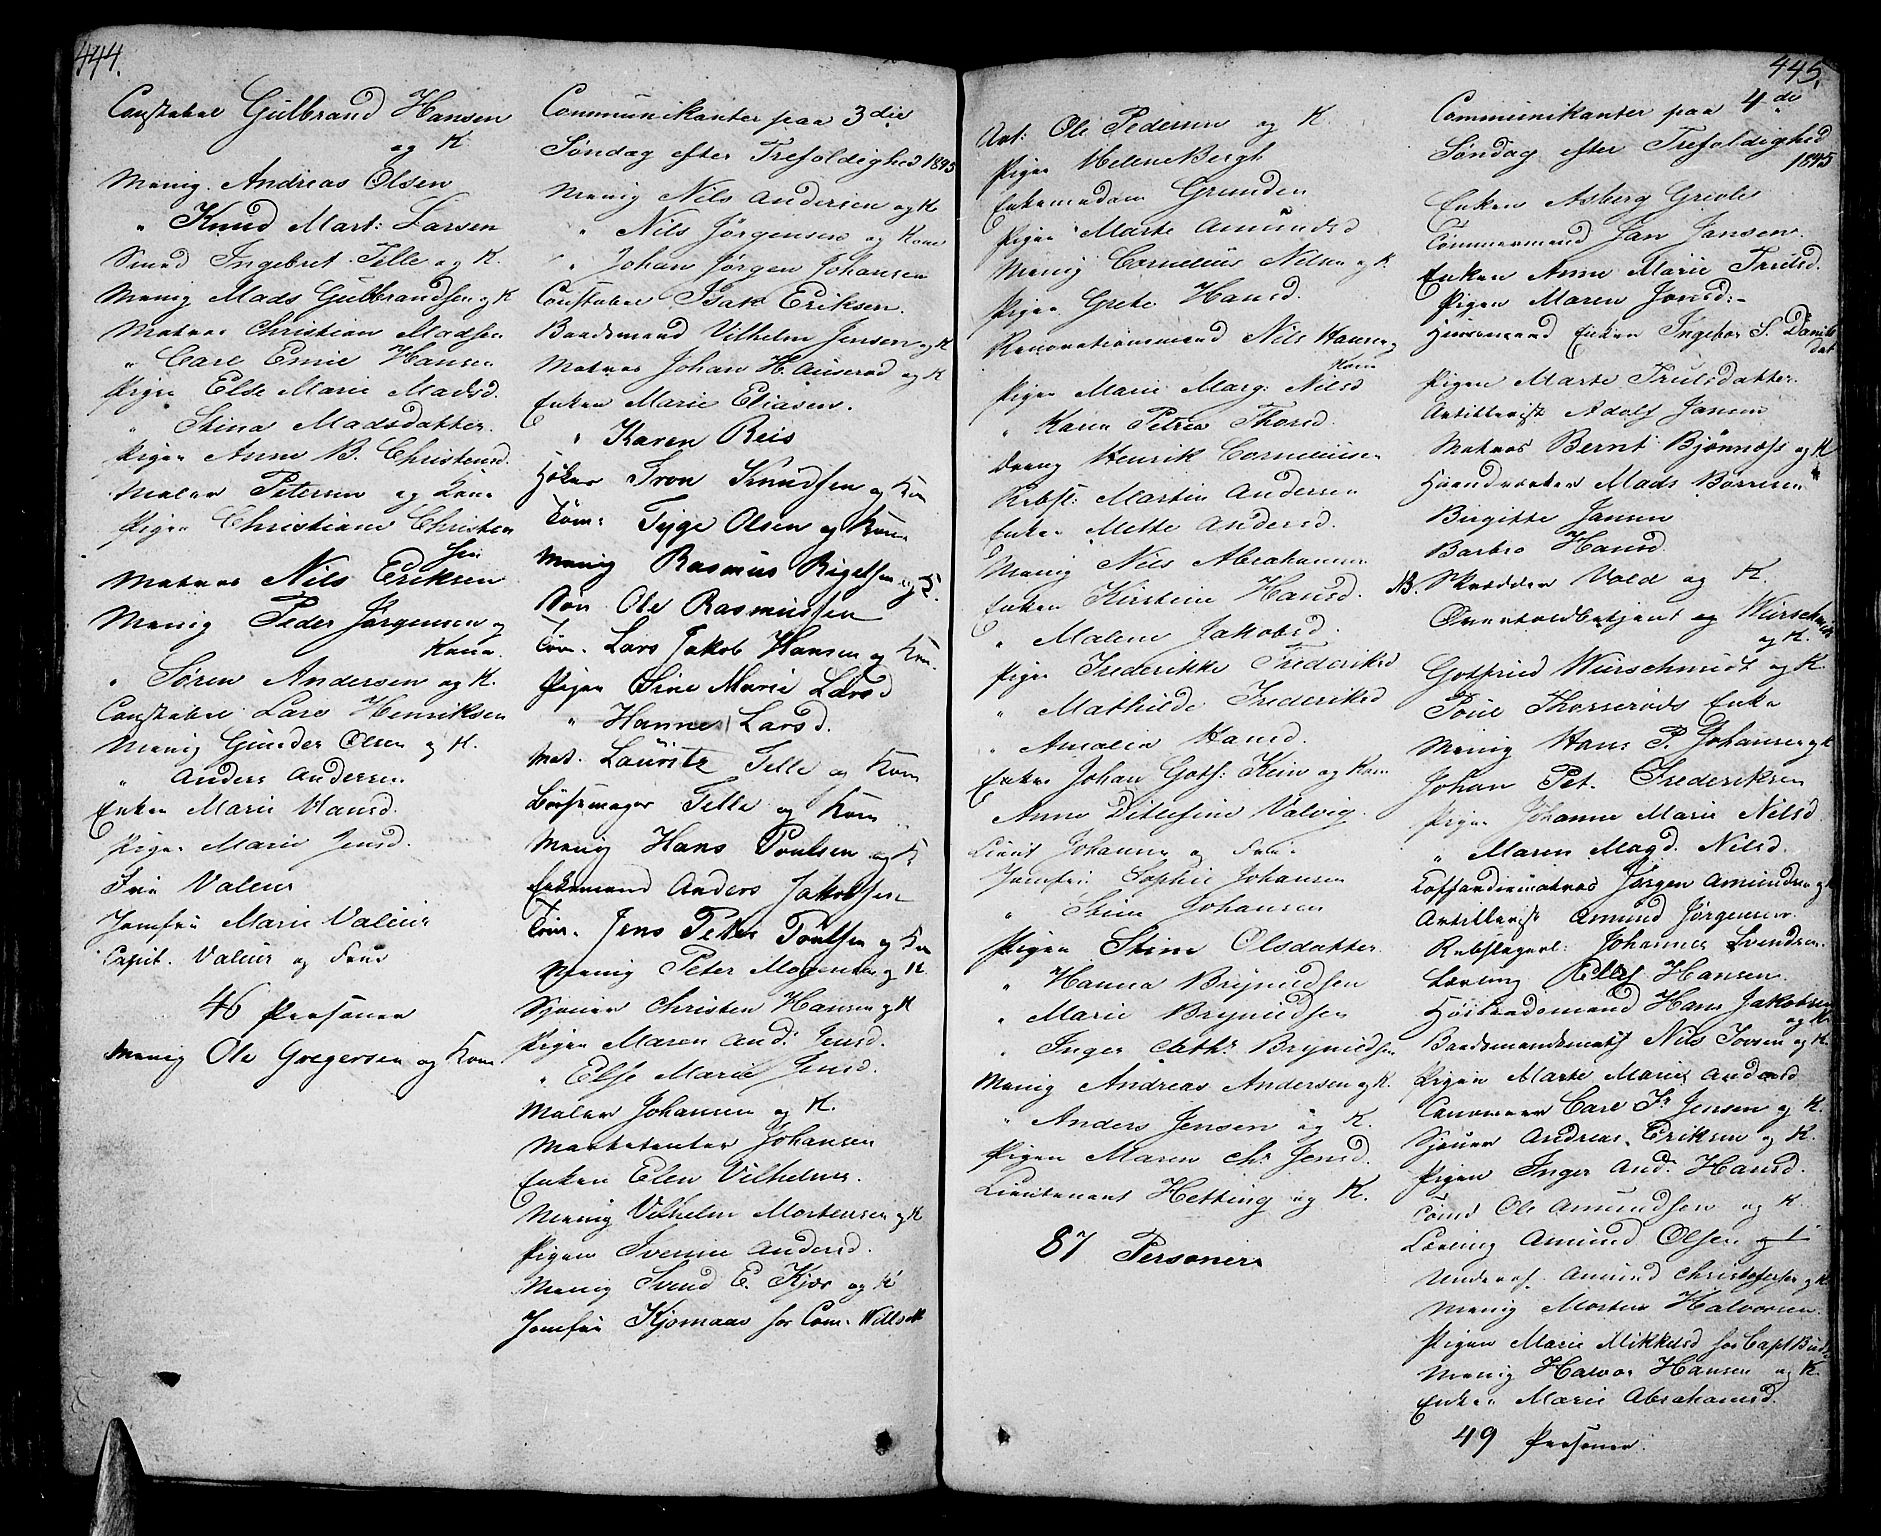 444.
Constabel Gulbrand Hansen
og K
Menig. Andreas Olsen
" Knud Mart: Larsen
Smed Ingebret Telle og K.
Menig Mads Gulbrandsen og K
Matros Christian Madsen
" Carl Emil Hansen
Pigen Else Marie Madsd.
" Stina Madsdatter.
Pigen Anne B. Christensd.
Maler Petersen og Kone
Pigen Christiane Christen
sen
Matros Nils Eriksen
Menig Peder Jørgensen og
Kone.
" Søren Andersen og K.
Constabel Lars Henriksen
Menig Gunder Olsen og K.
" Anders Andersen
Enken Marie Hansd.
Pigen Marie Jensd.
Fru Valeur
Jomfru Marie Valeur
Capit. Valeur og Frue
46 Personer
Menig Ole Gregersen og Kone
Communikanter paa 3die
Søndag efter Trefoldighed 1845
Menig Nils Andersen og K
" Nils Jørgensen og Kone
" Johan Jørgen Johansen
Constabel Isak Eriksen.
Baadsmand Vilhelm Jensen og K
Matros Johan H. Auserød og K
Enken Marie Eliasen.
" Karen Reis
Høker Iron Knudsen og Kone
Tøm. Tyge Olsen og Kone
Menig Rasmus Rigelsen og K.
Søn Ole Rasmussen
Tøm. Lars Jakob Hansen og Kone.
Pigen Sine Marie Larsd
" Hanne Larsd.
Mat. Lauritz Telle og Kone
Bøssemager Telle og Kone
Menig Hans Poulsen og K
Enkemand Anders Jakobsen
Tøm. Jens Peter Poulsen og Kone
Menig Peter Mogensen og K
Sjouer Christen Hansen og K
Pigen Maren And: Jensd.
" Else Marie Jensd.
Maler Johansen og K.
Marketenter Johansen
Enken Elen Vilhelms.
Menig Vilhelm Mortensen og K
Pigen Iverine Andersd.
Menig Svend E. Kjær og K
Jomfru Kjomaas for Com.
445.
Art: Ole Pedersen og K.
Pigen Helene Bergh
Enkemadam Grunden
Pigen Marte Amundsd
Menig Cornelius Nilsen og K.
Pigen Grete Hansd.
Renovationsmand Nils Hansen og
Kone
Pigen Marie Marg: Nilsd
" Karen Petrea Thorsd.
Dreng Henrik Corneliusen
Rebsl: Martin Andersen
Enken Mette Andersd.
Menig Nils Abrahamsen
Enken Kirstine Hansd.
" Malene Jakobsd.
Pigen Frederikke Frederiksd
" Mathilde Frederiksd
" Amalia Hansd.
Enken Johan Gotf: Keim og Kone
Anne Ditlefine Valvig.
Lieut Johansen og Frue.
Jomfru Sophie Johansen
" Stine Johansen
Pigen Stine Olsdatter
" Hanna Brynildsen
" Marie Brynildsen
" Inger Cath: Brynildsen
Menig Andreas Andersen og K.
" Anders Jensen og K.
Pigen Maren Ch: Jensd.
Lieutenant Hetting og K.
87 Personer
Communikanter paa 4de
Søndag efter Trefoldighed
1845
Enken Asberg
Tømmermand Jan Jansen.
Enken Anne Marie Trulsd.
Pigen Maren Jonsd:
Huusmand Enken Ingebor S. Daniels
dat
Pigen Marte Trulsdatter.
Artillerist Adolf Jansen
Matros Bernt Bjønnæss og K
Haandværker Mads Børresen "
Birgitte Jansen
Barbro Hansd.
NB. Skrædder Vold og K.
Overtoldbetjent og Wurschmidt
og K.
Gotfried Wurschmidt og K.
Poul Thorserøds Enke
Menig Hans P. Johansen og K
Johan Pet. Frederiksen
Pigen Johanne Marie Nilsd.
" Maren Magd. Nilsd.
Coffardiematros Jørgen Amundsen og K
Artillerist Amund Jørgensen.
Rebslagerl: Johannes Svendsen.
Lærling Ellef Hansen
Høibaadsmand Hans Jakobsen
og K
Baadsmandsmat Nils Iversen og K.
Pigen Marte Marie Andersd
Canoneer Carl Fr Jensen og K.
Sjouer Andreas Eriksen og K.
Pigen Inger And. Hansd.
Tømd Ole Amundsen og K.
Lærling Amund Olsen og
Underof. Amund Christofersen og K
Menig Morten Halvorsen.
Pigen Marie Mikkelsd for Capt
Menig Halvor Hansen og K.
Enken Marie Abrahamsd.
49 Personer.